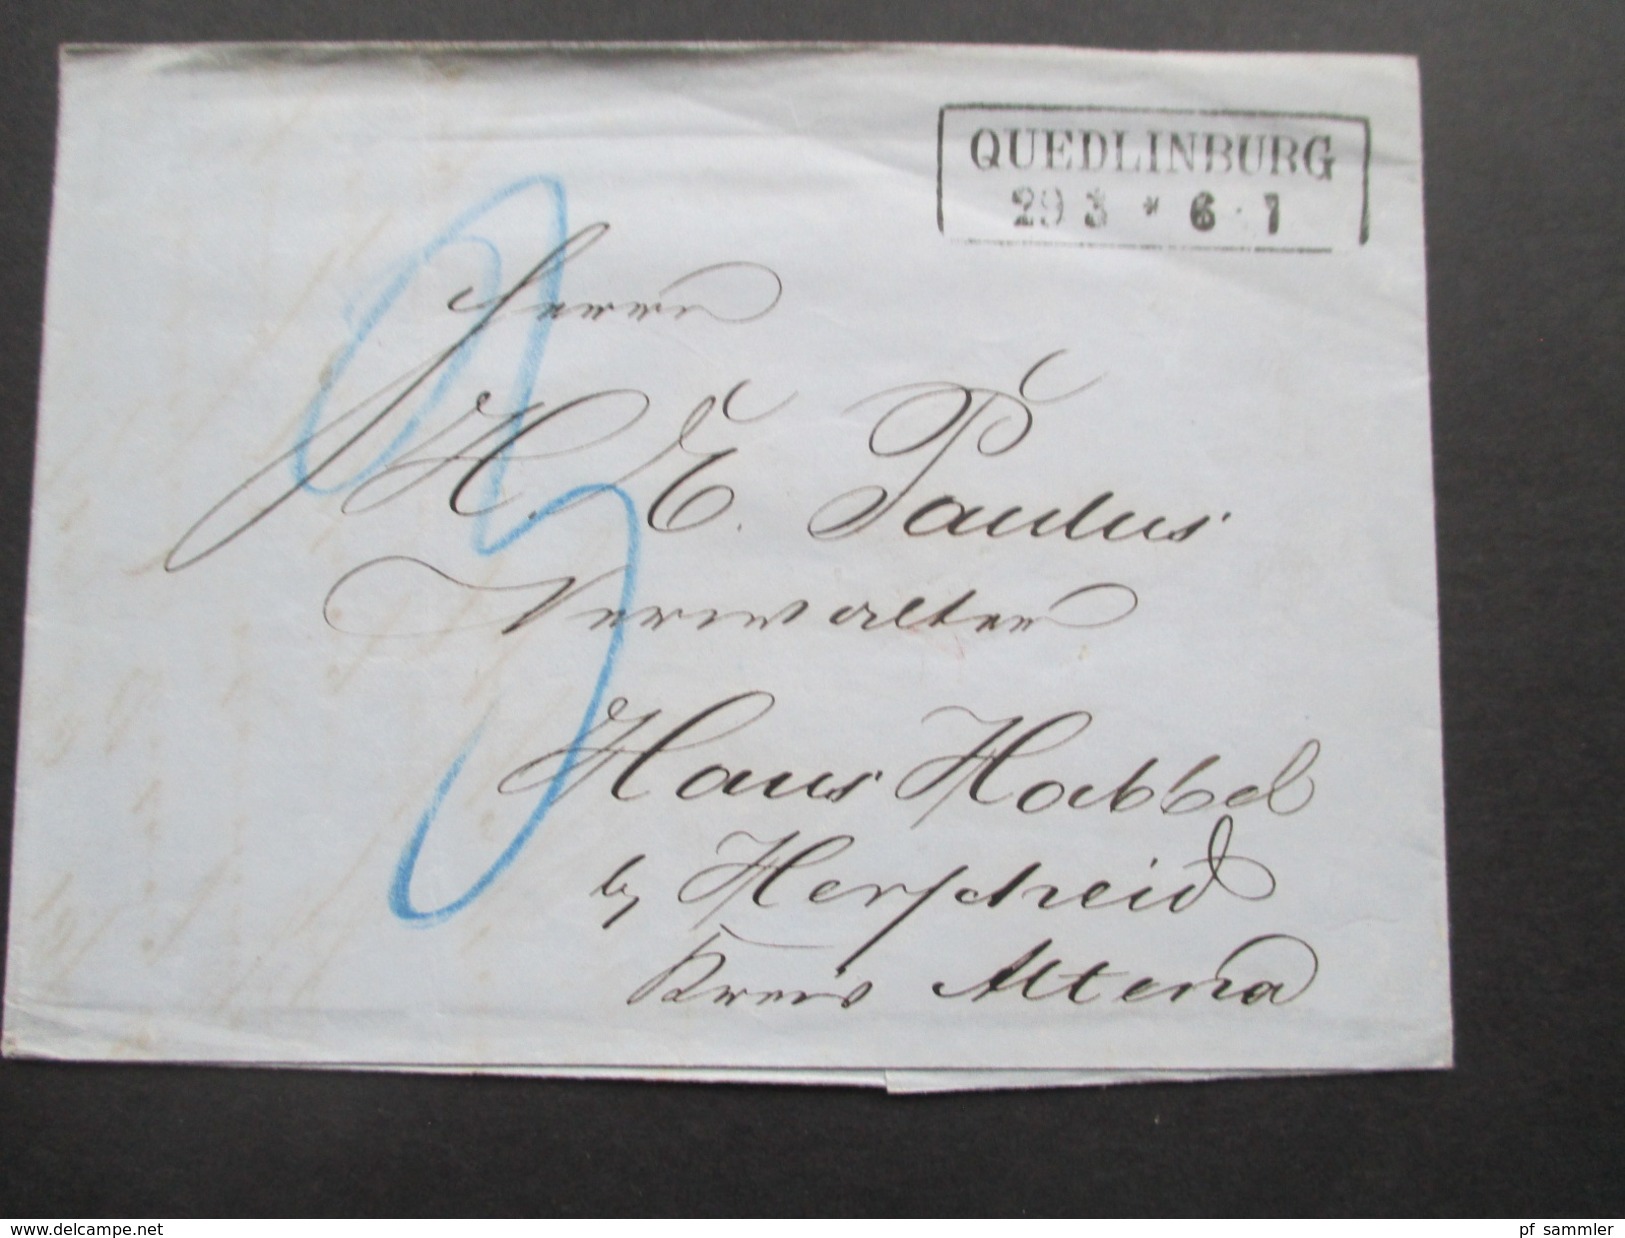 QUEDLINBURG
29 3 * 6 · 7
3
Herrn
H. E. Paulus
Verwalter
Haus Habbel
by Herscheid
Kreis Altena
www.delcampe.net
pf_sammler